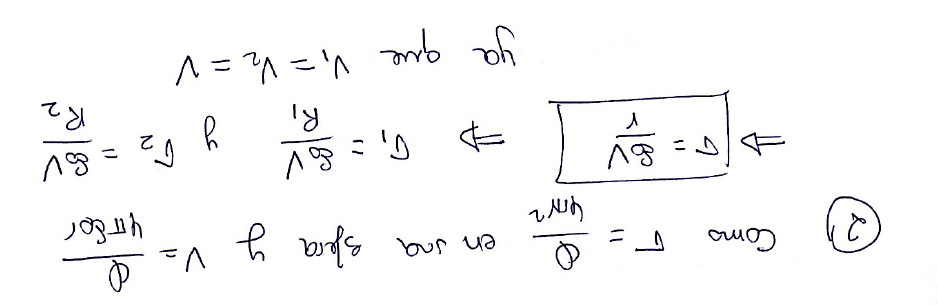 ② Como σ = Q/4πr² en una esfera y V = Q/4πε₀r
⇒ σ = ε₀V/r ⇒ σ₁ = ε₀V/R₁ y σ₂ = ε₀V/R₂
ya que V₁ = V₂ = V